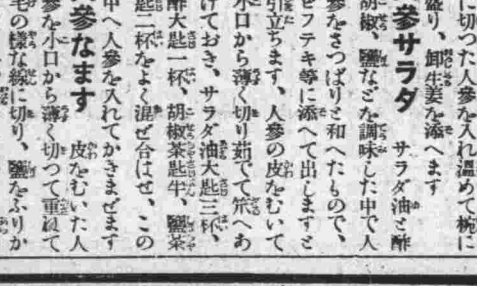 に切つた人參を入れ溫めて椀に
盛り、卸生姜を添へます
參サラダ　サラダ油と酢
胡椒、鹽などを調味した中で人
參をさつぱりと和へたもので、
ビフテキ等に添へて出しますと
引立ちます、人參の皮をむいて
小口から薄く切り茹でて笊へあ
けておき、サラダ油大匙三杯、
酢大匙一杯、胡椒茶匙半、鹽茶
匙二杯をよく混ぜ合はせ、この
中へ人參を入れてかきまぜます
參なます　皮をむいた人
參を小口から薄く切つて重ねて
毛の樣な線に切り、鹽をふりか